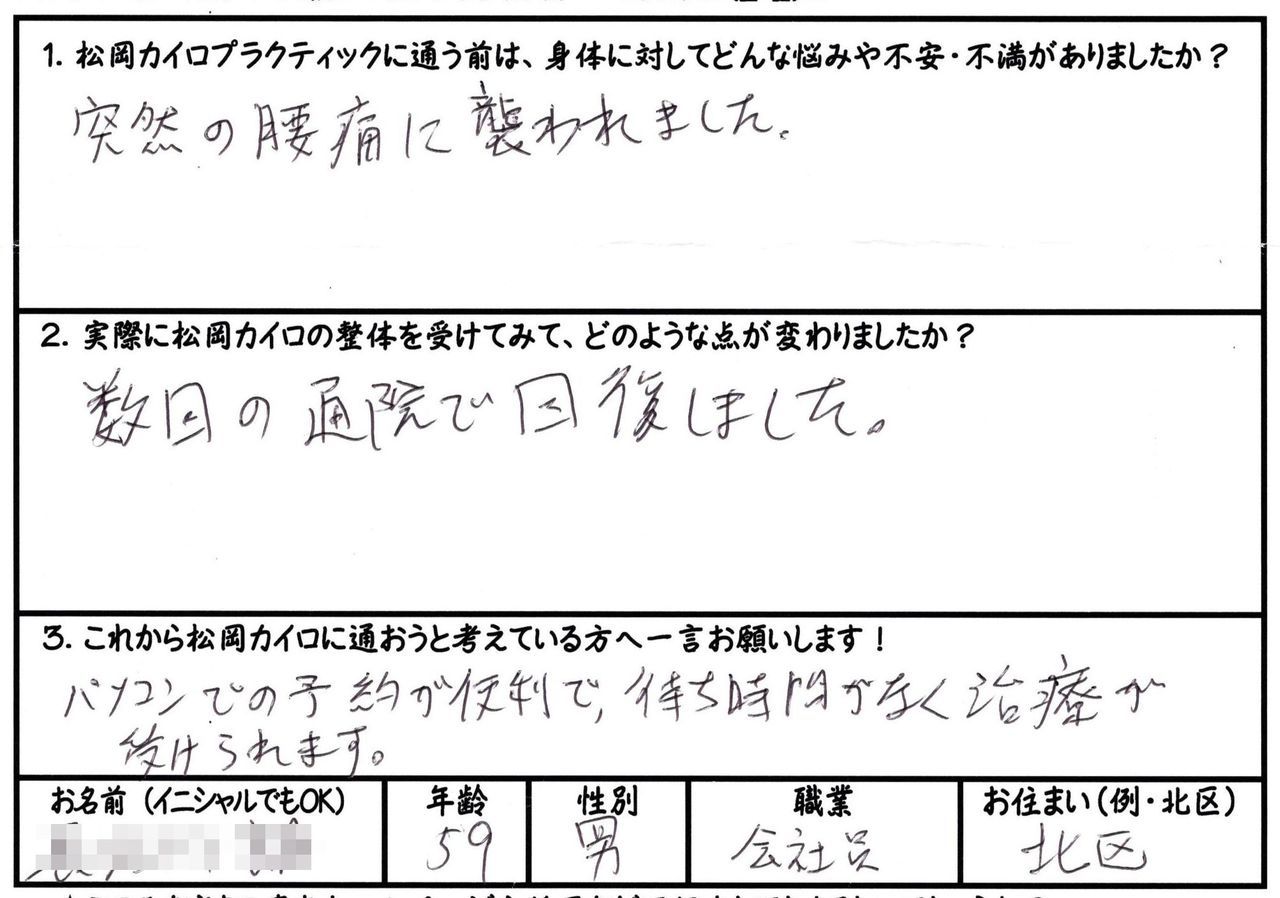 1. 松岡カイロプラクティックに通う前は、身体に対してどんな悩みや不安・不満がありましたか？
突然の腰痛に襲われました。
2. 実際に松岡カイロの整体を受けてみて、どのような点が変わりましたか？
数回の通院で回復しました。
3. これから松岡カイロに通おうと考えている方へ一言お願いします！
パソコンでの予約が便利で、待ち時間がなく治療が
受けられます。
お名前（イニシャルでもOK） 年齢 性別 職業 お住まい（例・北区）
59 男 会社員 北区